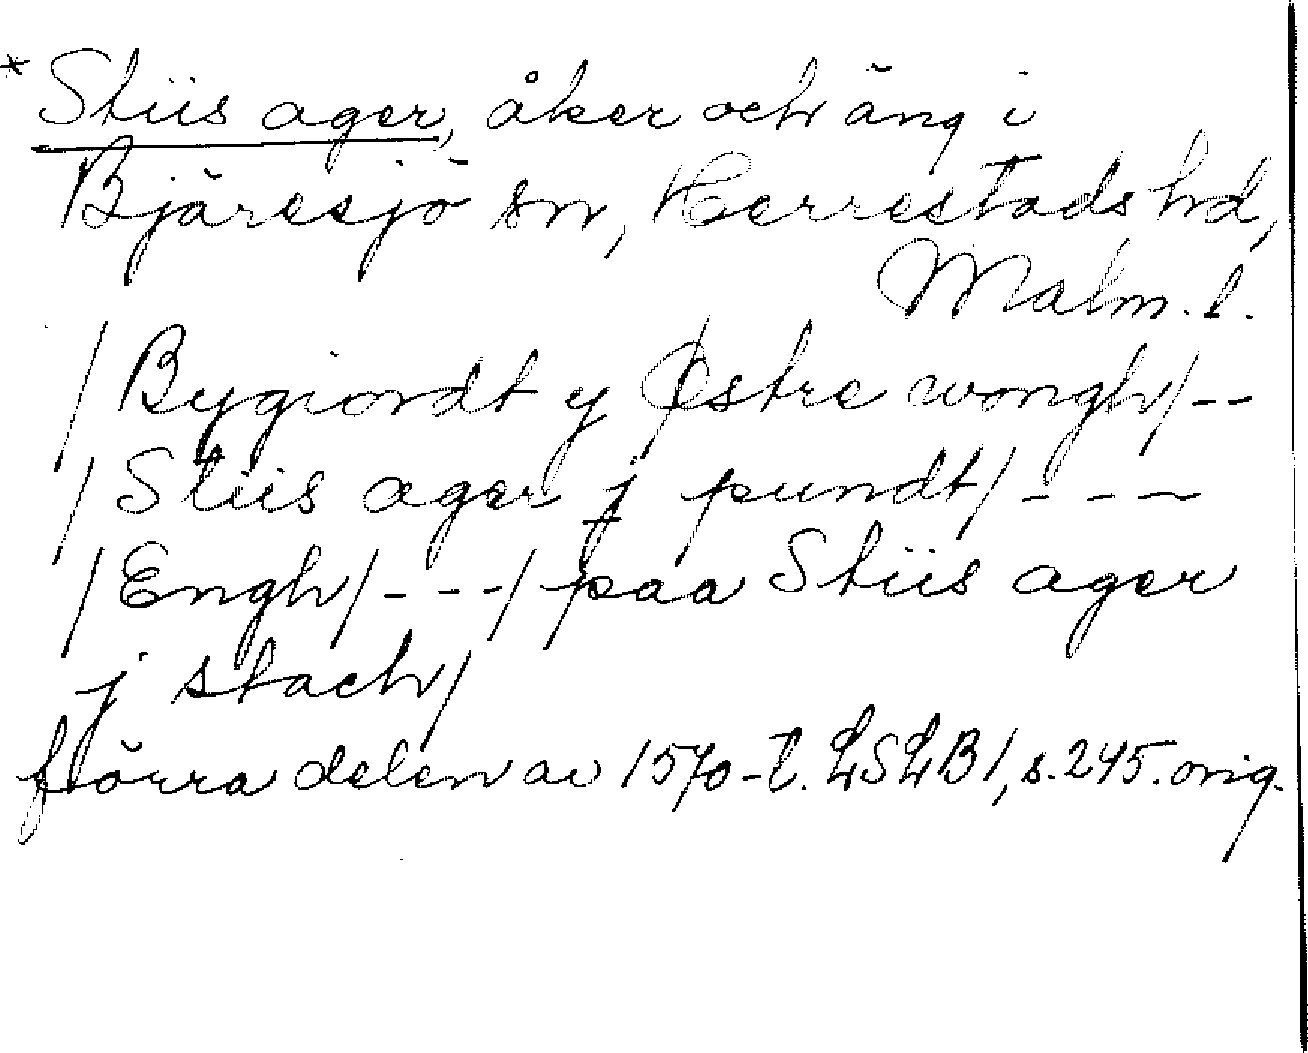 * Stiis ager, åker och äng i
Bjäresjö sn, Herrestads hd,
Malm. l.
/Bygiordt y Østre wongh/--
/Stiis ager j pundt/---
/Engh/---/paa Stiis ager
j stach/
förra delen av 1570-t. LSLB1, s. 245. orig.